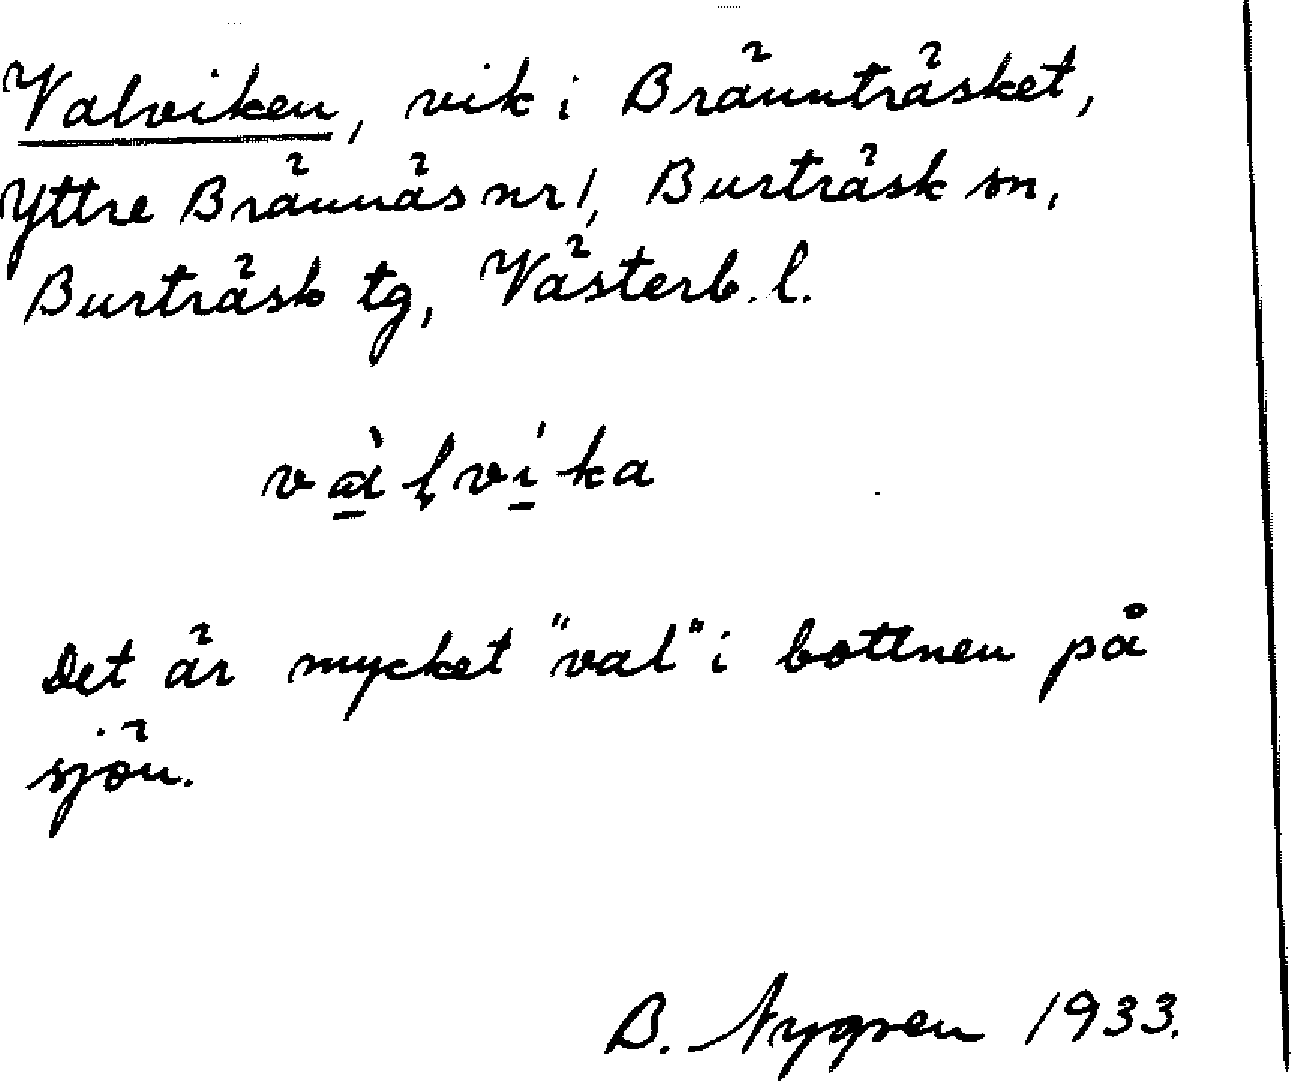 Valviken, vik i Brännträsket,
Yttre Brännäs nr 1, Burträsk sn,
Burträsk tg, Västerb. l.
và̲lví̲ka
Det är mycket "val" i bottnen på
sjön.
B. Nygren 1933.